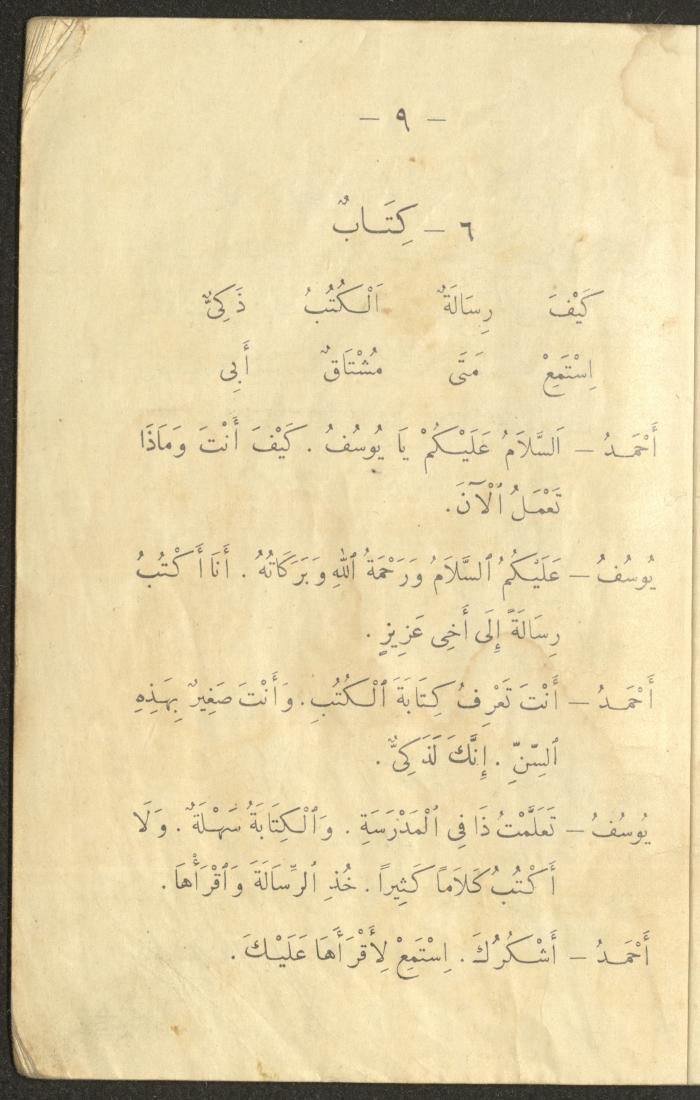 — ٩ —
٦ — كِتَابٌ
كَيْفَ رِسَالَةٌ اَلْكُتُبُ ذَكِىٌّ
اِسْتَمِعْ مَتَى مُشْتَاقٌ أَبِى
أَحْمَدُ — اَلسَّلَامُ عَلَيْكُمْ يَا يُوسُفُ . كَيْفَ أَنْتَ وَمَاذَا
تَعْمَلُ ٱلْآنَ .
يُوسُفُ — عَلَيْكُمُ ٱلسَّلَامُ وَرَحْمَةُ ٱللهِ وَبَرَكَاتُهُ . أَنَا أَكْتُبُ
رِسَالَةً إِلَى أَخِى عَزِيزٍ .
أَحْمَدُ — أَنْتَ تَعْرِفُ كِتَابَةَ ٱلْكُتُبِ . وَأَنْتَ صَغِيرٌ بِهَذِهِ
ٱلسِّنِّ . إِنَّكَ لَذَكِىٌّ .
يُوسُفُ — تَعَلَّمْتُ ذَا فِى ٱلْمَدْرَسَةِ . وَٱلْكِتَابَةُ سَهْلَةٌ . وَلَا
أَكْتُبُ كَلَاماً كَثِيراً . خُذِ ٱلرِّسَالَةَ وَٱقْرَأْهَا .
أَحْمَدُ — أَشْكُرُكَ . اِسْتَمِعْ لِأَقْرَأَهَا عَلَيْكَ .